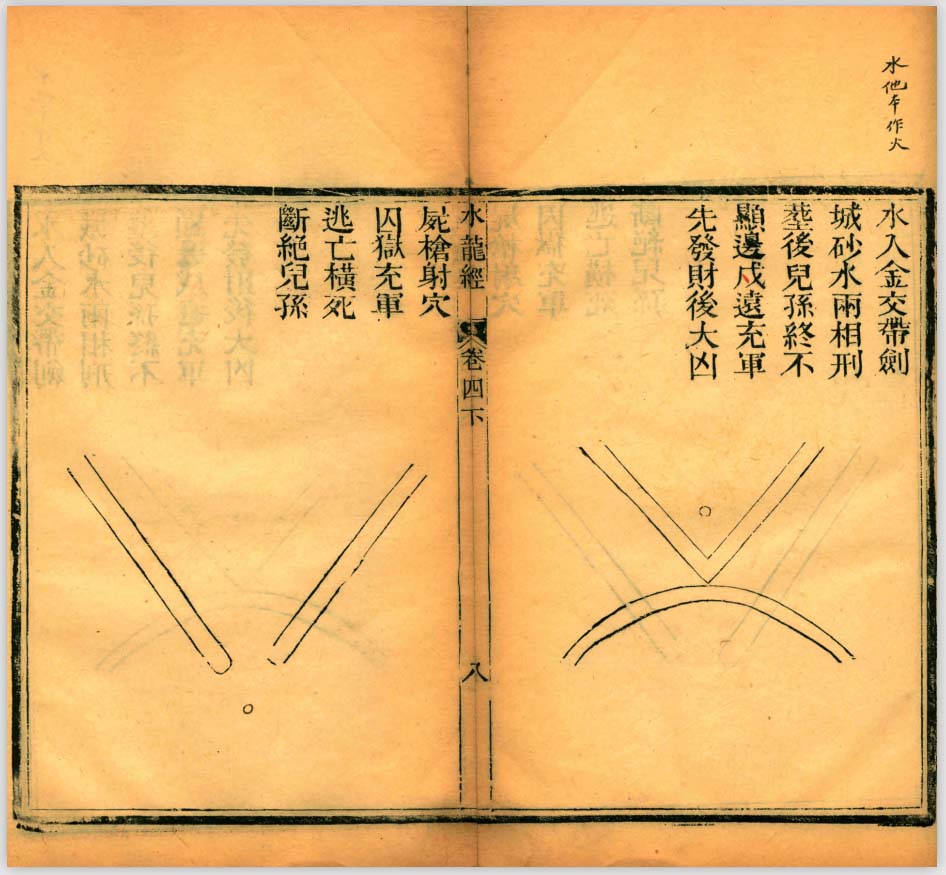 水他本作火
水入金交帶劍
城砂水兩相刑
塟後兒孫終不
顯邊戍遠充軍
先發財後大凶
水龍經
卷四下
八
屍槍射穴
囚獄充軍
逃亡橫死
斷絕兒孫